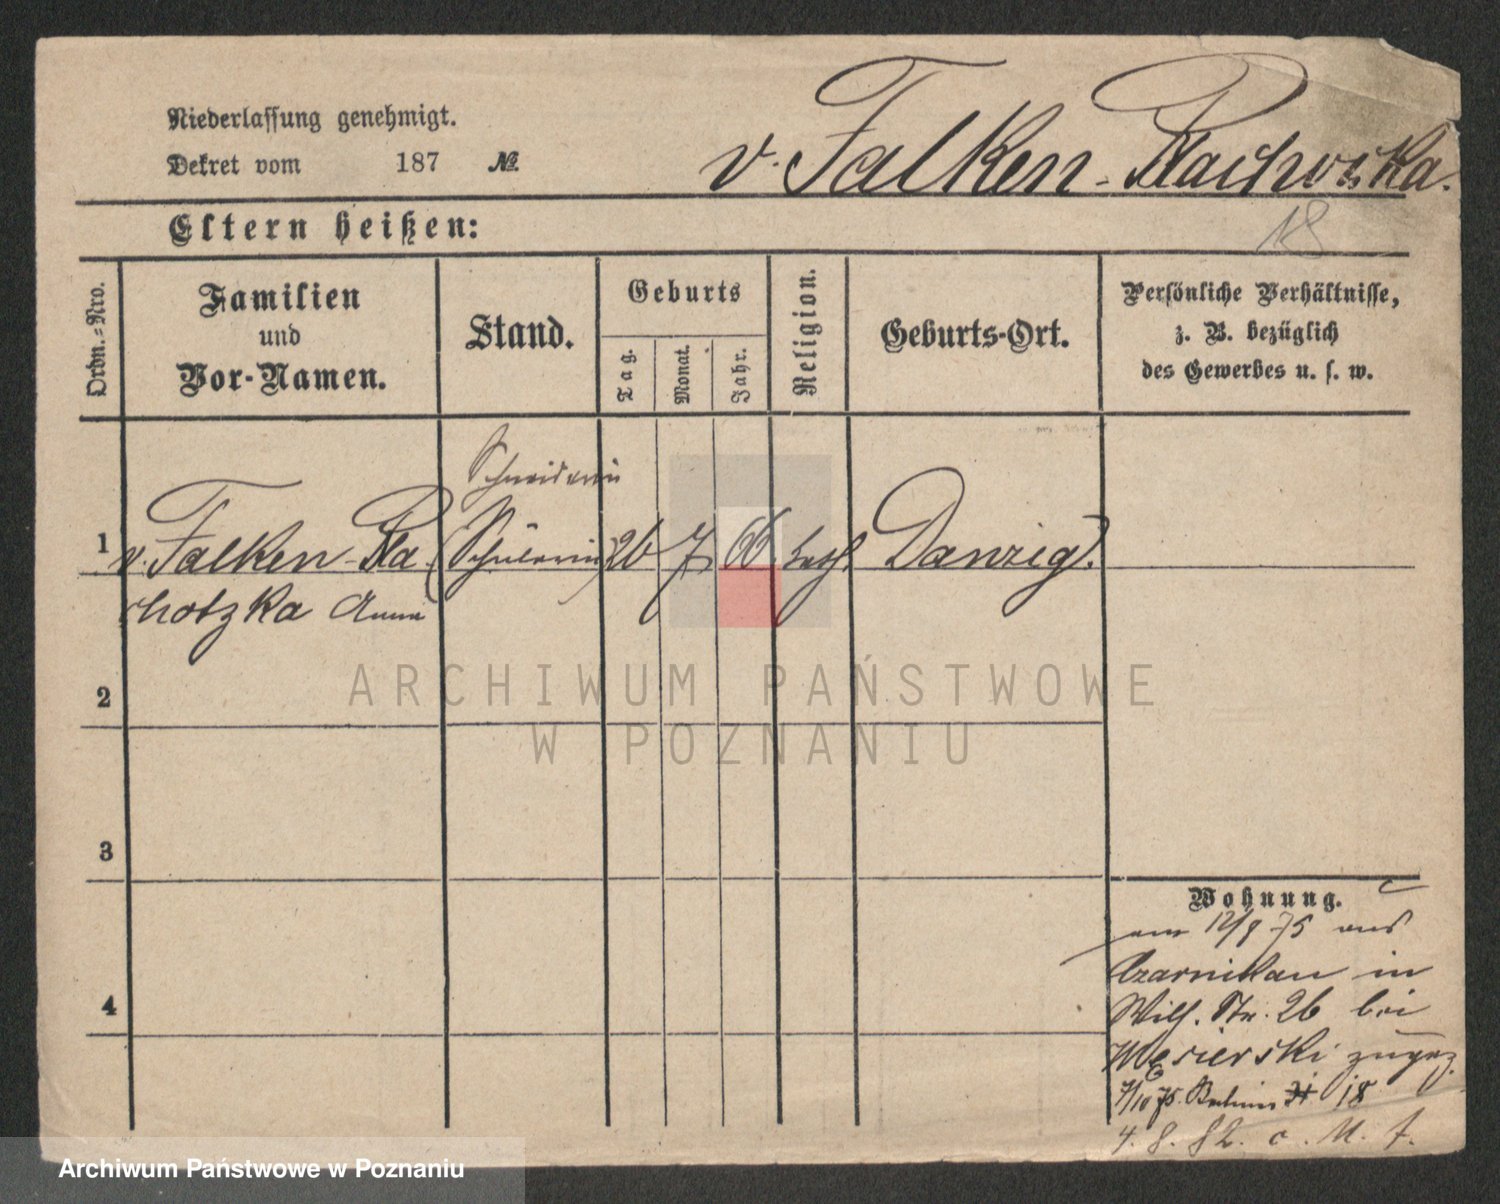 Niederlassung genehmigt.
Dekret vom 187 №
v. Falken-Plachotzka.
18
Eltern heißen:
Ordn.-Nro.
Familien
und
Vor-Namen.
Stand.
Geburts
Tag.
Monat.
Jahr.
Religion.
Geburts-Ort.
Persönliche Verhältnisse,
z. B. bezüglich
des Gewerbes u. s. w.
Schneiderin
1 v. Falken-Pla- (Schülerin) 26 7 66 kath Danzig.
chotzka Anna
2
3
4
Wohnung.
am 12/9 75 aus
Czarnikau in
Wilh. Str. 26 bei
Węsierski zugez.
7/10 75. 18
4. 8. 82. o. M. f.
ARCHIWUM PAŃSTWOWE
W POZNANIU
Archiwum Państwowe w Poznaniu